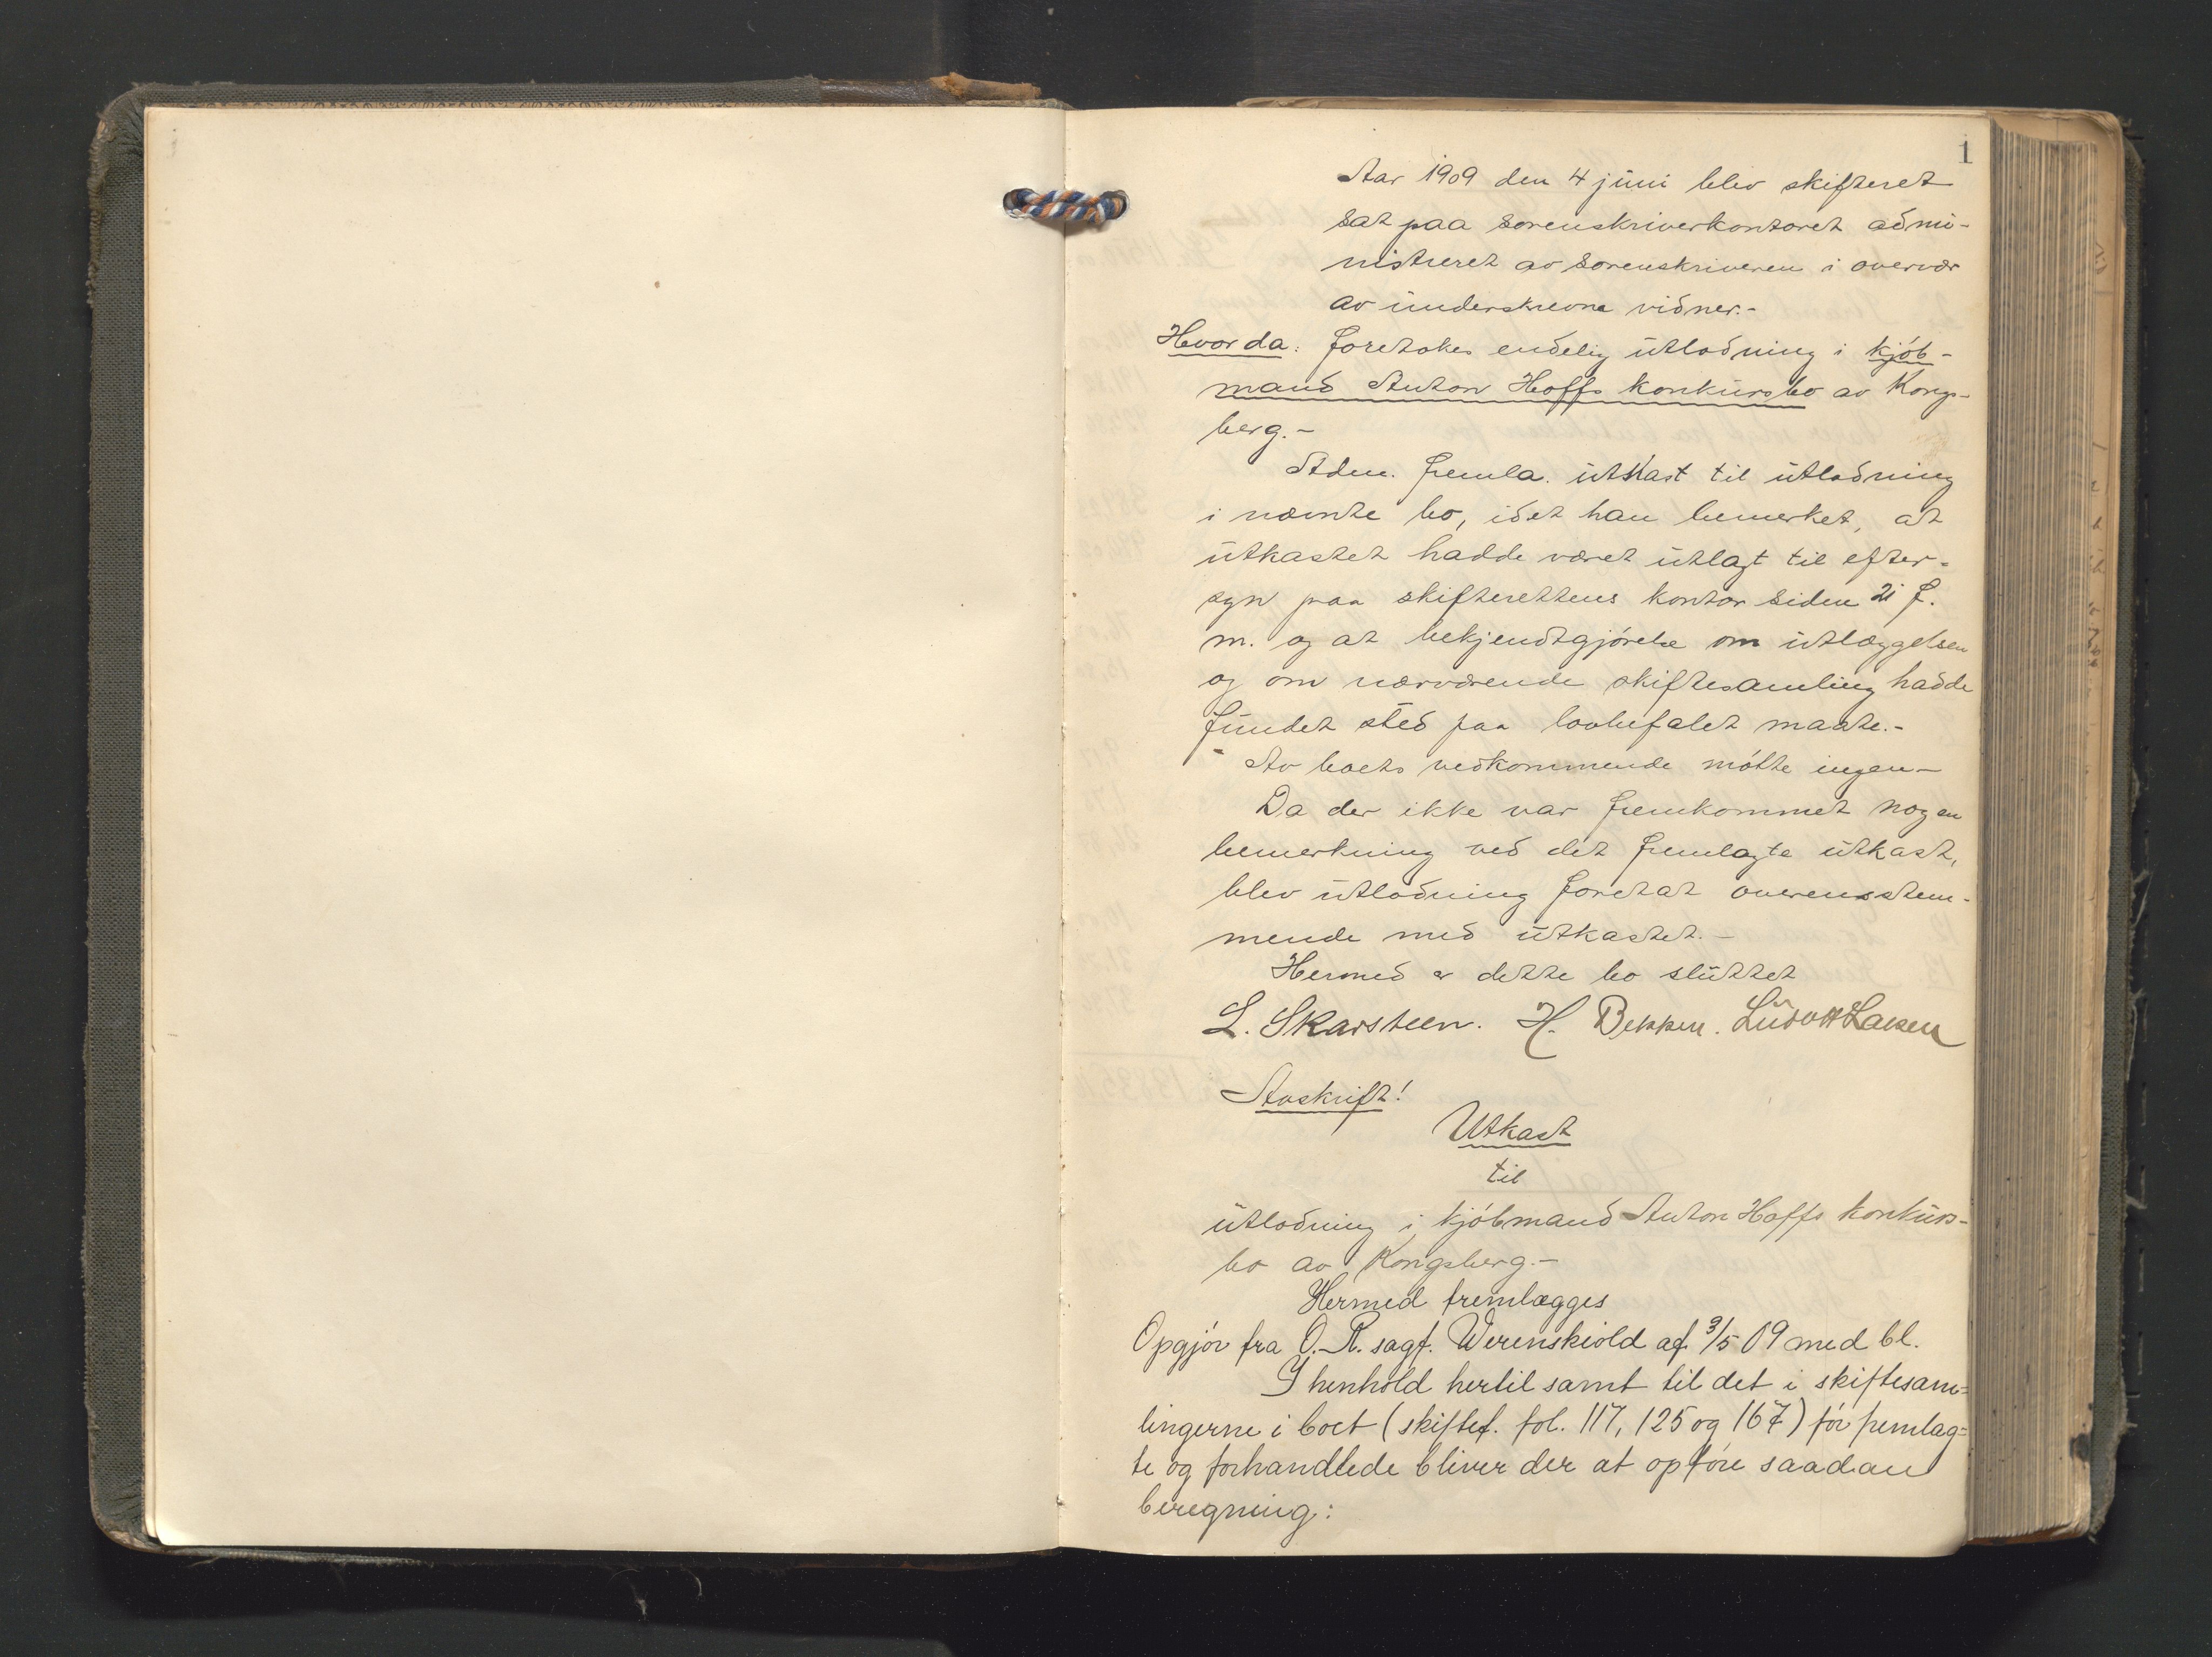 1
Aar 1909 den 4 juni blev skifteret
sat paa sorenskriverkontoret admi-
nistreret av sorenskriveren i overvær
av underskrevne vidner.-
Hvorda: foretokes endelig utlodning i kjöb-
mand Anton Hoffs konkursbo av Kongs-
berg.-
Adm. fremla. utkast til utlodning
i nævnte bo, idet han bemerket, at
utkastet hadde været utlagt til efter-
syn paa skifterettens kontor siden 21 f.
m. og at bekjendtgjörelse om utlæggelsen
og om nærværende skiftesamling hadde
fundet sted paa lovbefalet maate.-
Av boets vedkommende mötte ingen-
Da der ikke var fremkommet nogen
bemerkning ved det fremlagte utkast,
blev utlodning foretat overensstem-
mende med utkastet.-
Hermed er dette bo sluttet
L. Skarsteen. H. Bekken. Ludv Larsen
Avskrift!
Utkast
til
utlodning i kjöbmand Anton Hoffs konkurs-
bo av Kongsberg.-
Hermed fremlægges
Opgjör fra O.R. sagf. Werenskiold af 3/5 09 med bl.
I henhold hertil samt til det i skiftesam=
lingerne i boet (skiftef. fol. 117, 125 og 167) för fremlag=
te og forhandlede bliver der at opföre saadan
beregning: